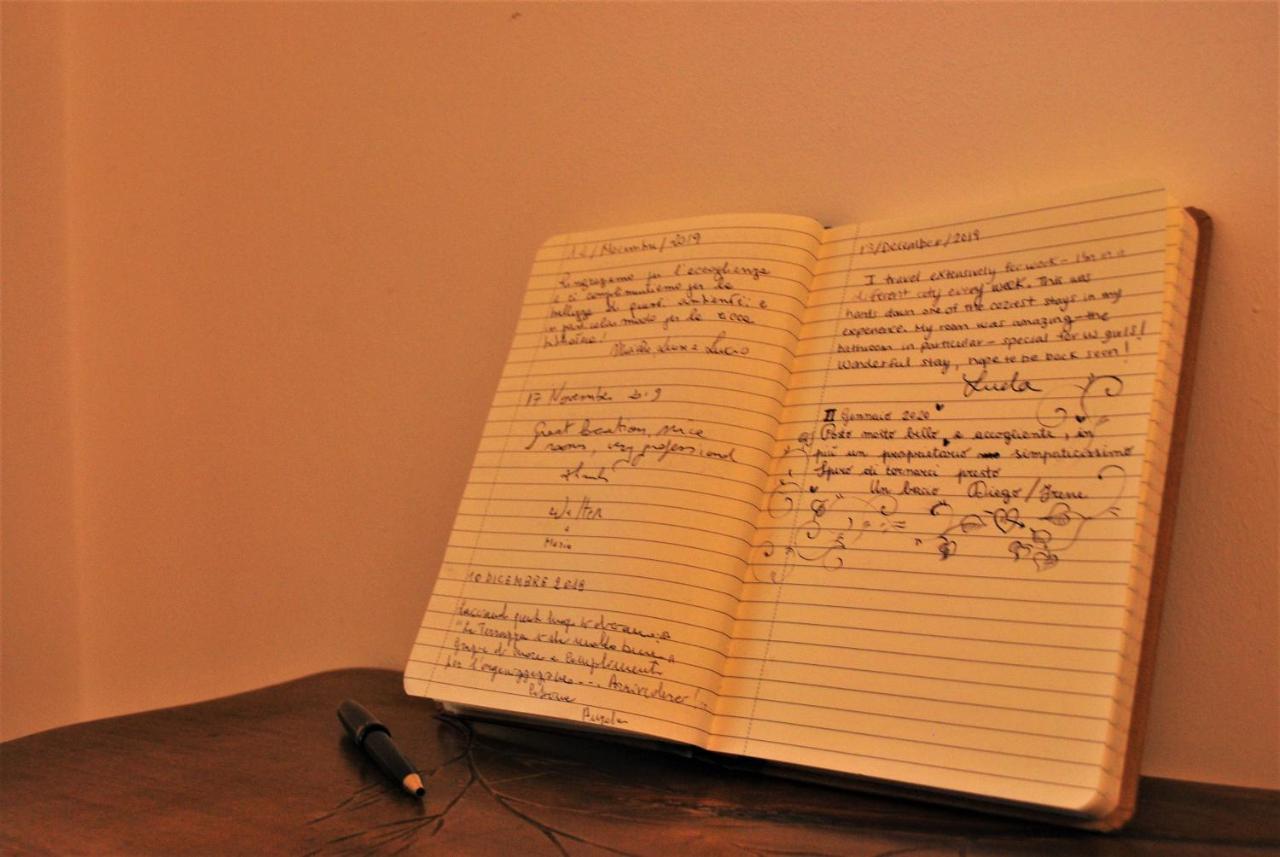 12/Novembre/2019
Ringraziamo per l'accoglienza
e ci complimentiamo per la
bellezza di questi ambienti e
in particolar modo per la ricca
Luca e Lucio
17 Novembre 2019
Great location, nice
rooms, very professional
Walter
e
Maria
10 DICEMBRE 2019
"La Terrazza
grazie di cuore e complimenti
per l'organizzazione... Arrivederci!
Angela
13/December/2019
I travel extensively for work - I'm in a
different city every week. This was
hands down one of the coziest stays in my
experience. My room was amazing - the
bathroom in particular - special for us girls!
Wonderful stay, hope to be back soon!
II Gennaio 2020
Posto molto bello, e accogliente, in
più un proprietario simpaticissimo
Spero di tornarci presto
Un bacio Diego/Irene